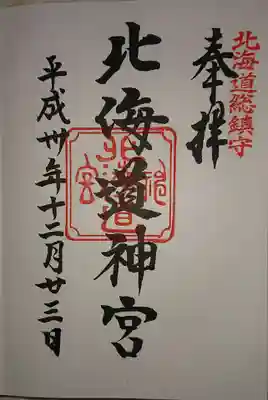 北海道総鎮守
奉拝
北海道神宮
北海道神宮
平成卅年十二月廿三日